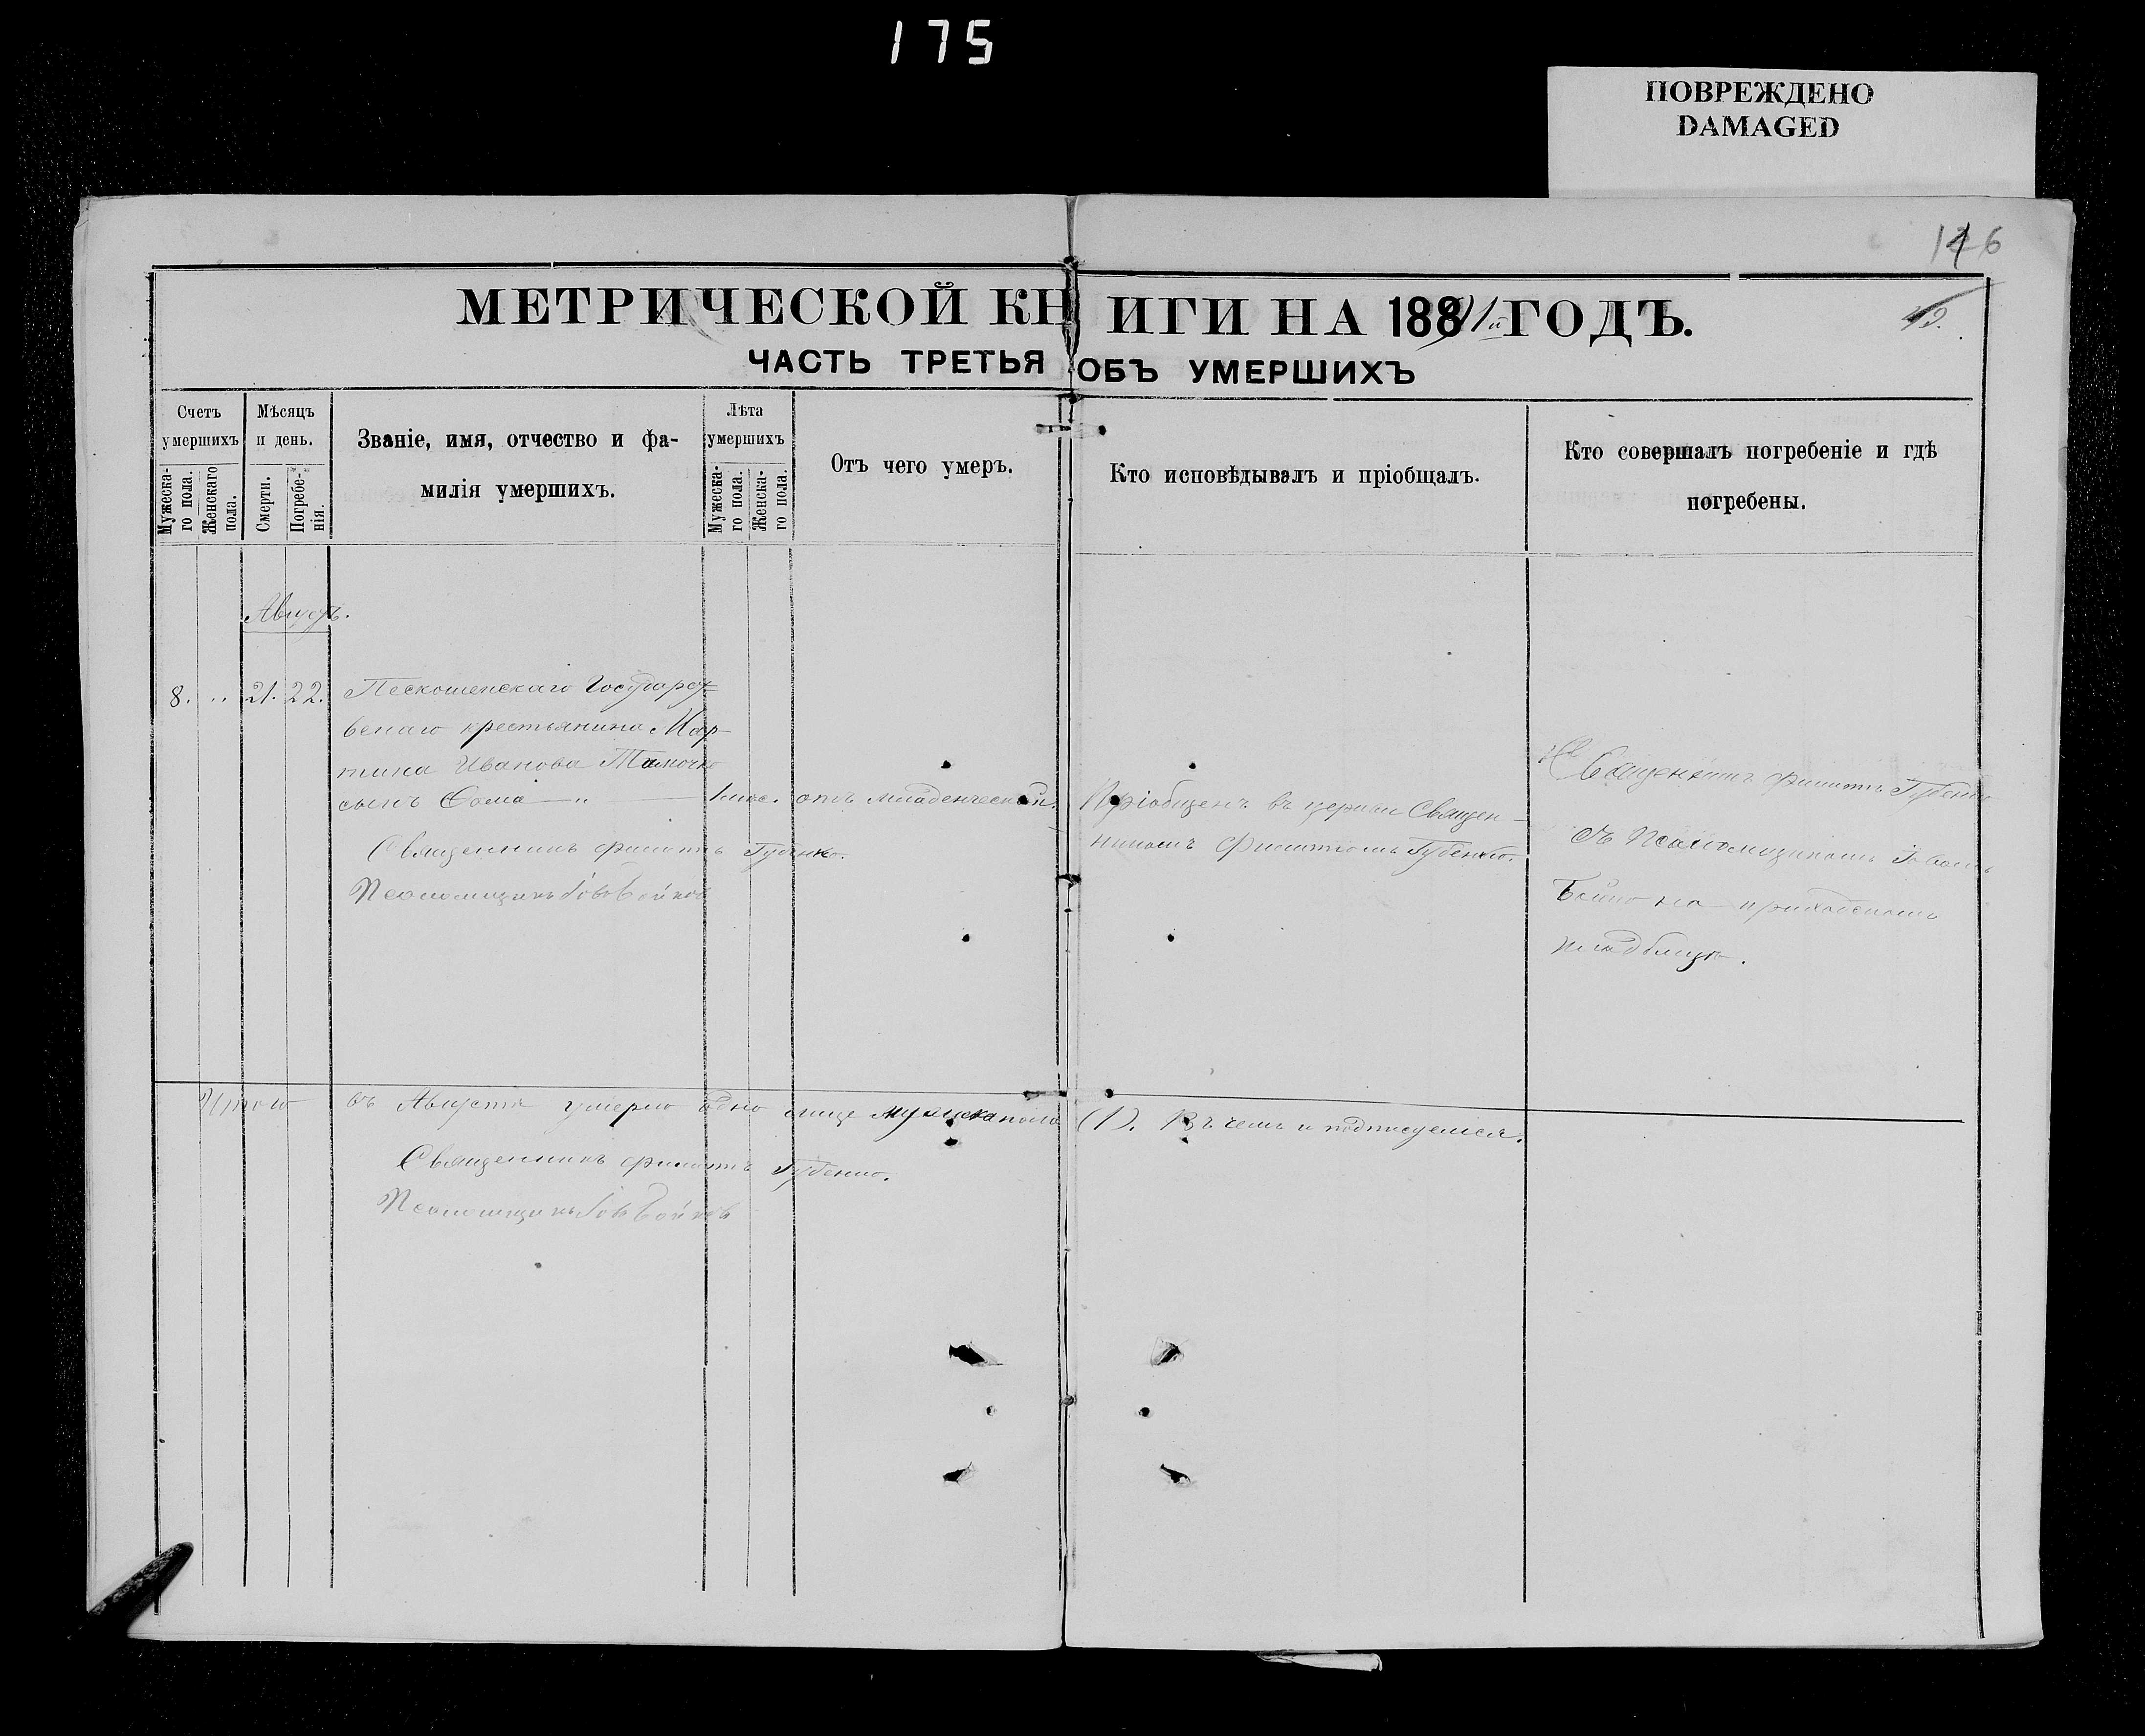 175
ПОВРЕЖДЕНО
DAMAGED
МЕТРИЧЕСКОЙ КНИГИ НА 1891й ГОДЪ.
ЧАСТЬ ТРЕТЬЯ ОБЪ УМЕРШИХЪ
Счетъ умершихъ
Мужескаго пола.
Женскаго пола.
Мѣсяцъ и день.
Смерти.
Погребенія.
Званіе, имя, отчество и фа-
милія умершихъ.
Лѣта умершихъ
Мужескаго пола.
Женскаго пола.
Отъ чего умеръ.
Кто исповѣдывалъ и пріобщалъ.
Кто совершалъ погребеніе и гдѣ
погребены.
Августъ.
8. " 21. 22.
Государст-
венаго крестьянина Мар-
тина Иванова
сынъ Ѳома — " — 1 мѣс. отъ младенческой.
Священникъ Филиппъ Губенко.
Псаломщикъ Іовъ Бойко
Пріобщенъ въ церкви Священ-
никомъ Филиппомъ Губенко.
Священникъ Филиппъ Губенко
съ Псаломщикомъ Іовомъ
Бойко на приходскомъ
кладбищѣ.
Итого въ Августѣ умерло одно лице мужеска пола (1). Въ чемъ и подписуемся.
Священникъ Филиппъ Губенко.
Псаломщикъ Іовъ Бойко